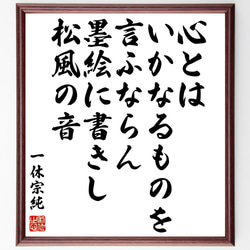 心とは
いかなるものを
言ふならん
墨絵に書きし
松風の音
一休宗純